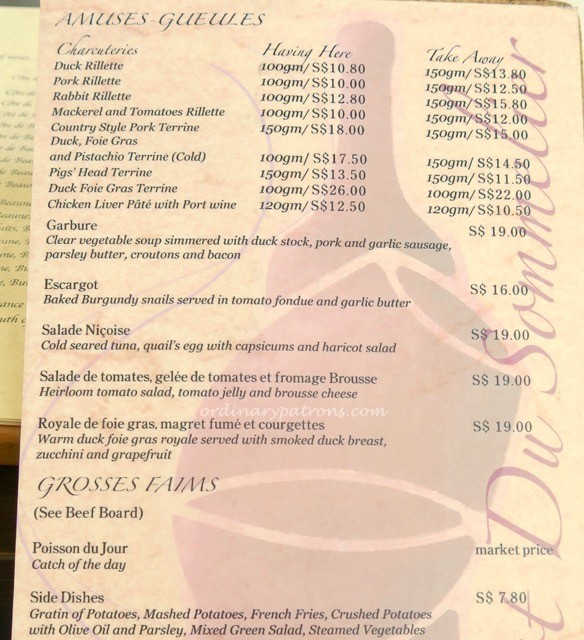 AMUSES-GUEULES
Charcuteries Having Here Take Away
Duck Rillette 100gm/S$10.80 150gm/S$13.80
Pork Rillette 100gm/S$10.00 150gm/S$12.50
Rabbit Rillette 100gm/S$12.80 150gm/S$15.80
Mackerel and Tomatoes Rillette 100gm/S$10.00 150gm/S$12.00
Country Style Pork Terrine 150gm/S$18.00 150gm/S$15.00
Duck, Foie Gras
and Pistachio Terrine (Cold) 100gm/S$17.50 150gm/S$14.50
Pigs' Head Terrine 150gm/S$13.50 150gm/S$11.50
Duck Foie Gras Terrine 100gm/S$26.00 100gm/S$22.00
Chicken Liver Pâté with Port wine 120gm/S$12.50 120gm/S$10.50
Garbure S$ 19.00
Clear vegetable soup simmered with duck stock, pork and garlic sausage,
parsley butter, croutons and bacon
Escargot S$ 16.00
Baked Burgundy snails served in tomato fondue and garlic butter
Salade Niçoise S$ 19.00
Cold seared tuna, quail's egg with capsicums and haricot salad
Salade de tomates, gelée de tomates et fromage Brousse S$ 19.00
Heirloom tomato salad, tomato jelly and brousse cheese
ordinarypatrons.com
Royale de foie gras, magret fumé et courgettes S$ 19.00
Warm duck foie gras royale served with smoked duck breast,
zucchini and grapefruit
GROSSES FAIMS
(See Beef Board)
Poisson du Jour market price
Catch of the day
Side Dishes S$ 7.80
Gratin of Potatoes, Mashed Potatoes, French Fries, Crushed Potatoes
with Olive Oil and Parsley, Mixed Green Salad, Steamed Vegetables
t Du Sommelier